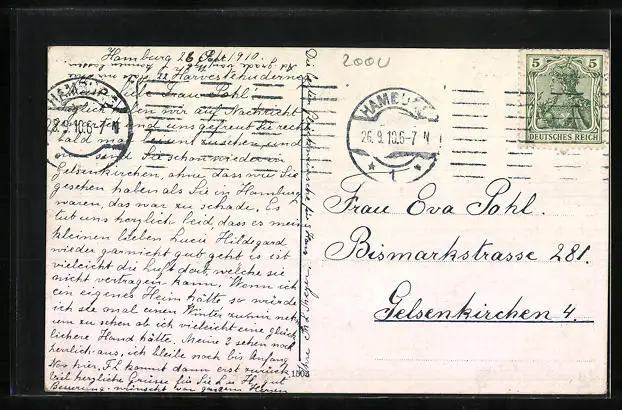 Hamburg 26 Sept. 1910.
Harvestehuderweg
Liebe Frau Pohl.
täglich haben wir auf Nachricht
gewartet und uns gefreut Sie recht
bald mal bei uns zu sehen, und
nun sind Sie schon wieder in
Gelsenkirchen, ohne dass wir Sie
gesehen haben als Sie in Hamburg
waren, das war zu schade. Es
tut uns herzlich leid dass es mein
kleinen lieben Lucie Hildegard
wieder garnicht gut geht, es ist
vieleicht die Luft dort, welche sie
nicht vertragen kann. Wenn ich
ein eigenes Heim hätte so würde
ich sie mal einen Winter zu mir neh
um zu sehen ob ich vieleicht eine glück
lichere Hand hätte. Meine 2 sehen noch
herrlich aus, ich bleibe noch bis Anfang
Nov hier. kommt dann erst zurück
Viel herzliche Grüsse für Sie u. gut
Besserung wünscht von ganzem Herzen
2000
HAMBURG
26.9.10.6-7 N
* 1 *
HAMBURG
26.9.10.6-7 N
5 5
DEUTSCHES REICH
Frau Eva Pohl.
Bismarkstrasse 281.
Gelsenkirchen 4.
1503